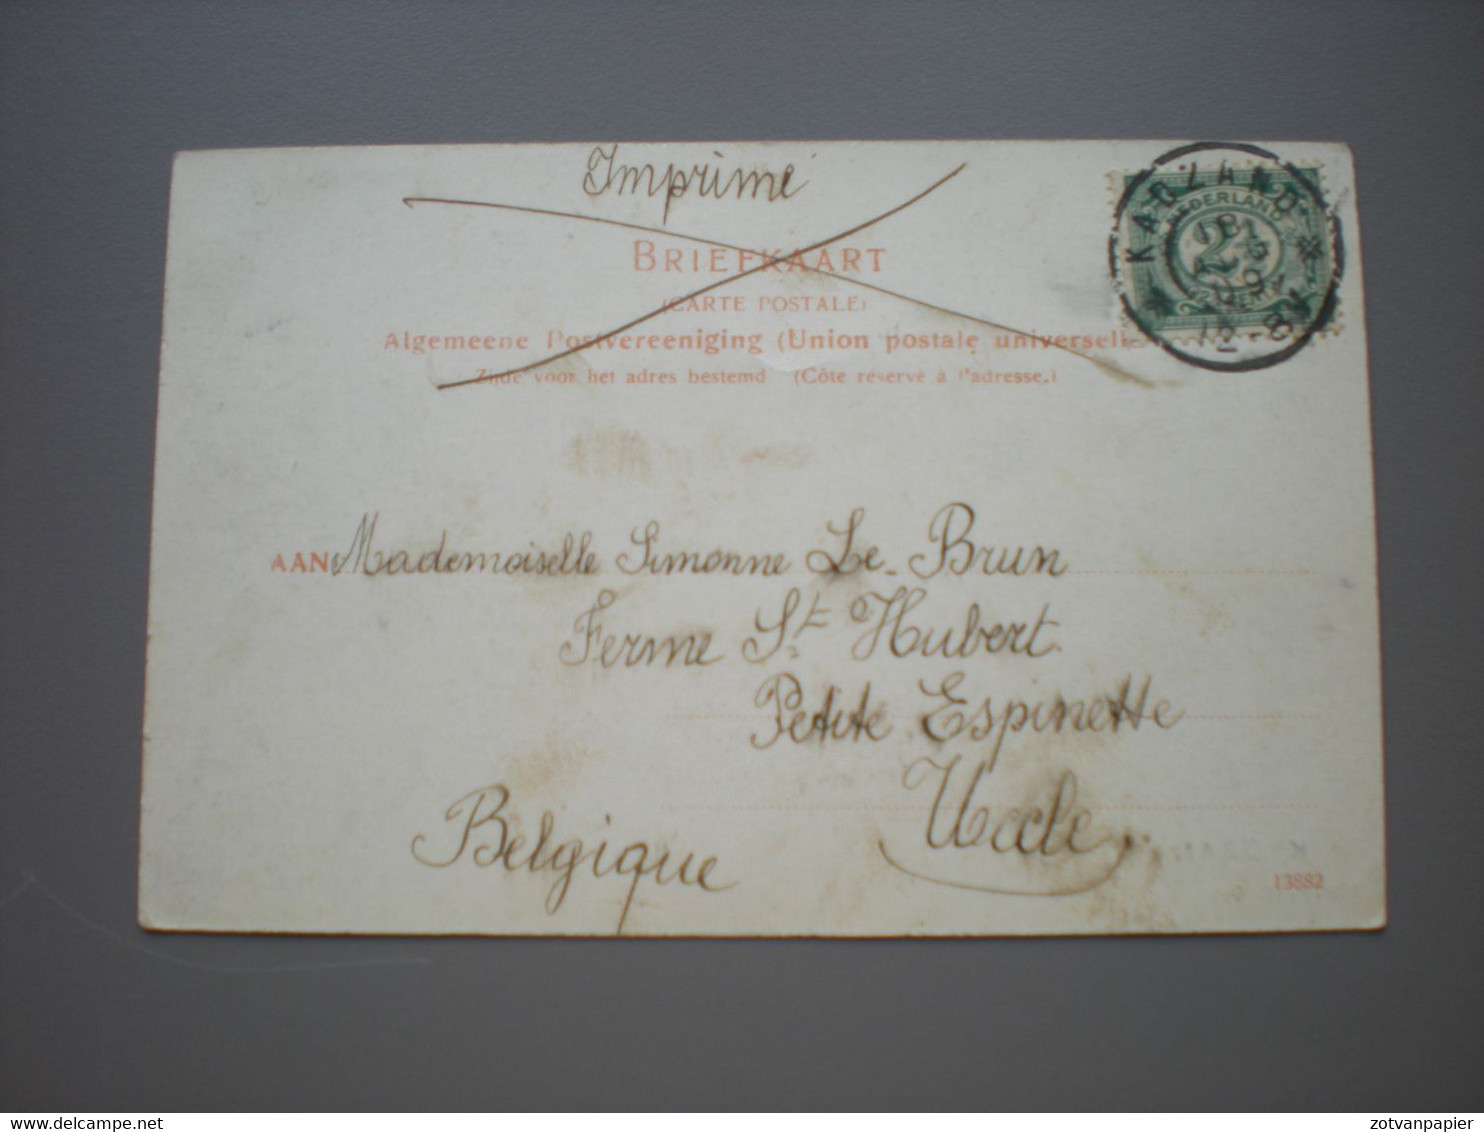 Imprimé
BRIEFKAART
(CARTE POSTALE)
Algemeene Postvereeniging (Union postale universelle
Zijde voor het adres bestemd (Côte réservé à l'adresse.)
KADZAND
NEDERLAND
2½
AAN Mademoiselle Simonne Le Brun
Ferme St Hubert
Petite Espinette
Uccle
Belgique
13882
delcampe.net
zotvanpapier